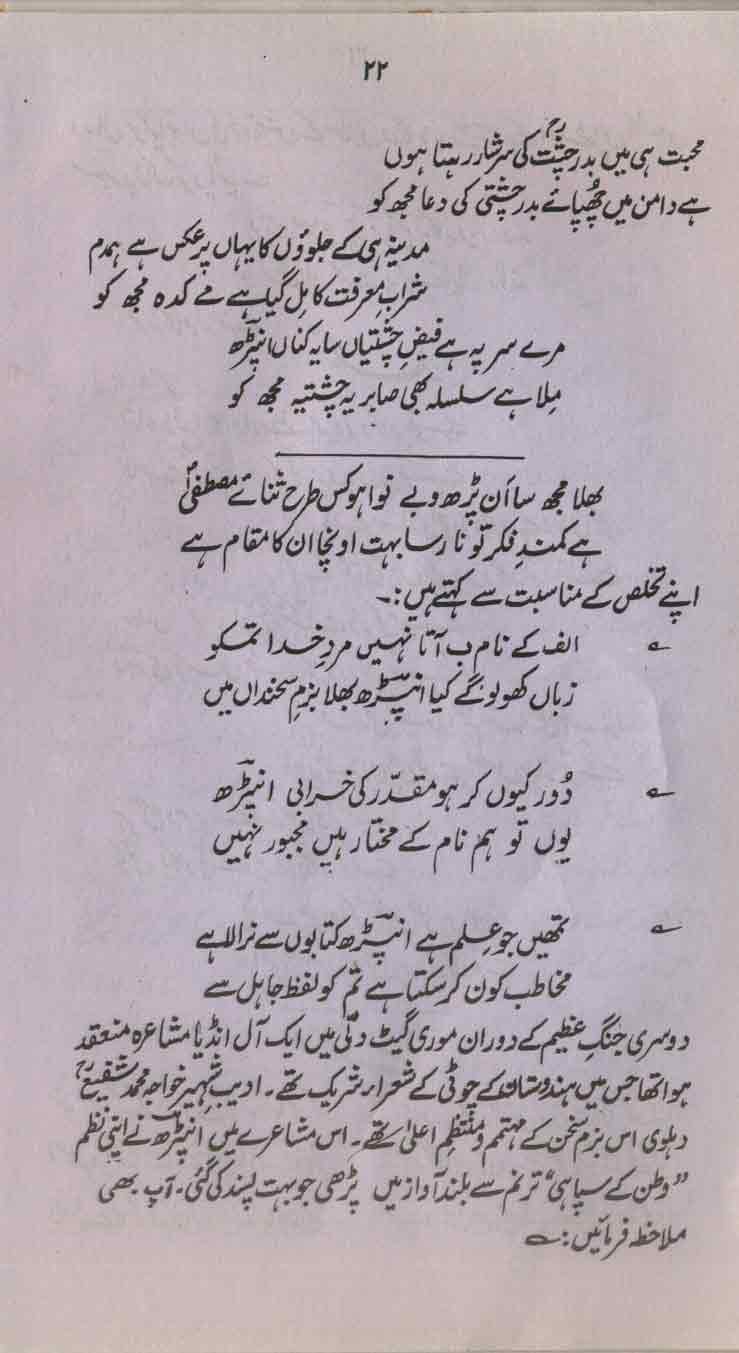 ۲۲
محبت ہی میں بدر چشتؒ کی سرشار رہتا ہوں
ہے دامن میں چھُپائے بدر چشتی کی دعا مجھ کو
مدینہ ہی کے جلوؤں کا یہاں پر عکس ہے ہمدم
شرابِ معرفت کا مِل گیا ہے مے کدہ مجھ کو
مرے سر پہ ہے فیضِ چشتیاں سایہ کناں انپڑھؔ
مِلا ہے سلسلہ بھی صابریہ چشتیہ مجھ کو
بھلا مجھ سا اَن پڑھ و بے نوا ہو کس طرح ثنائے مصطفیٰؐ
ہے کمندِ فکر تو نارسا بہت اونچا ان کا مقام ہے
اپنے تخلص کے مناسبت سے کہتے ہیں:۔
؎ الف کے نام ب آتا نہیں مردِ خدا تمکو
زباں کھولو گے کیا انپڑھؔ بھلا بزمِ سخنداں میں
؎ دُور کیوں کر ہو مقدّر کی خرابی انپڑھؔ
یوں تو ہم نام کے مختار ہیں مجبور نہیں
؎ تمھیں جو عِلم ہے انپڑھؔ کتابوں سے نرالا ہے
مخاطب کون کر سکتا ہے تم کو لفظ جاہل سے
دوسری جنگِ عظیم کے دوران موری گیٹ دلّی میں ایک آل انڈیا مشاعرہ منعقد
ہوا تھا جس میں ہندوستان کے چوٹی کے شعراء شریک تھے۔ ادیبِ شہیر خواجہ محمد شفیعؒ
دہلوی اس بزم سخن کے مہتمم و منتظمِ اعلیٰ تھے۔ اس مشاعرے میں انپڑھؔ نے اپنی نظم
”وطن کے سپاہی“ ترنم سے بلند آواز میں پڑھی جو بہت پسند کی گئی۔ آپ بھی
ملاحظہ فرمائیں:؎